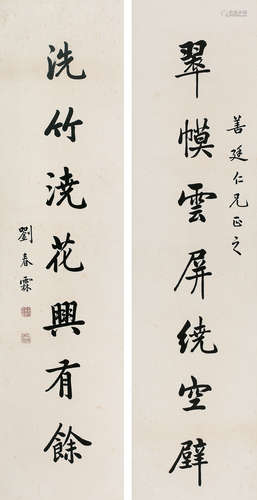 善廷仁兄正之
翠幙雲屏繞空壁
洗竹澆花興有餘
劉春霖